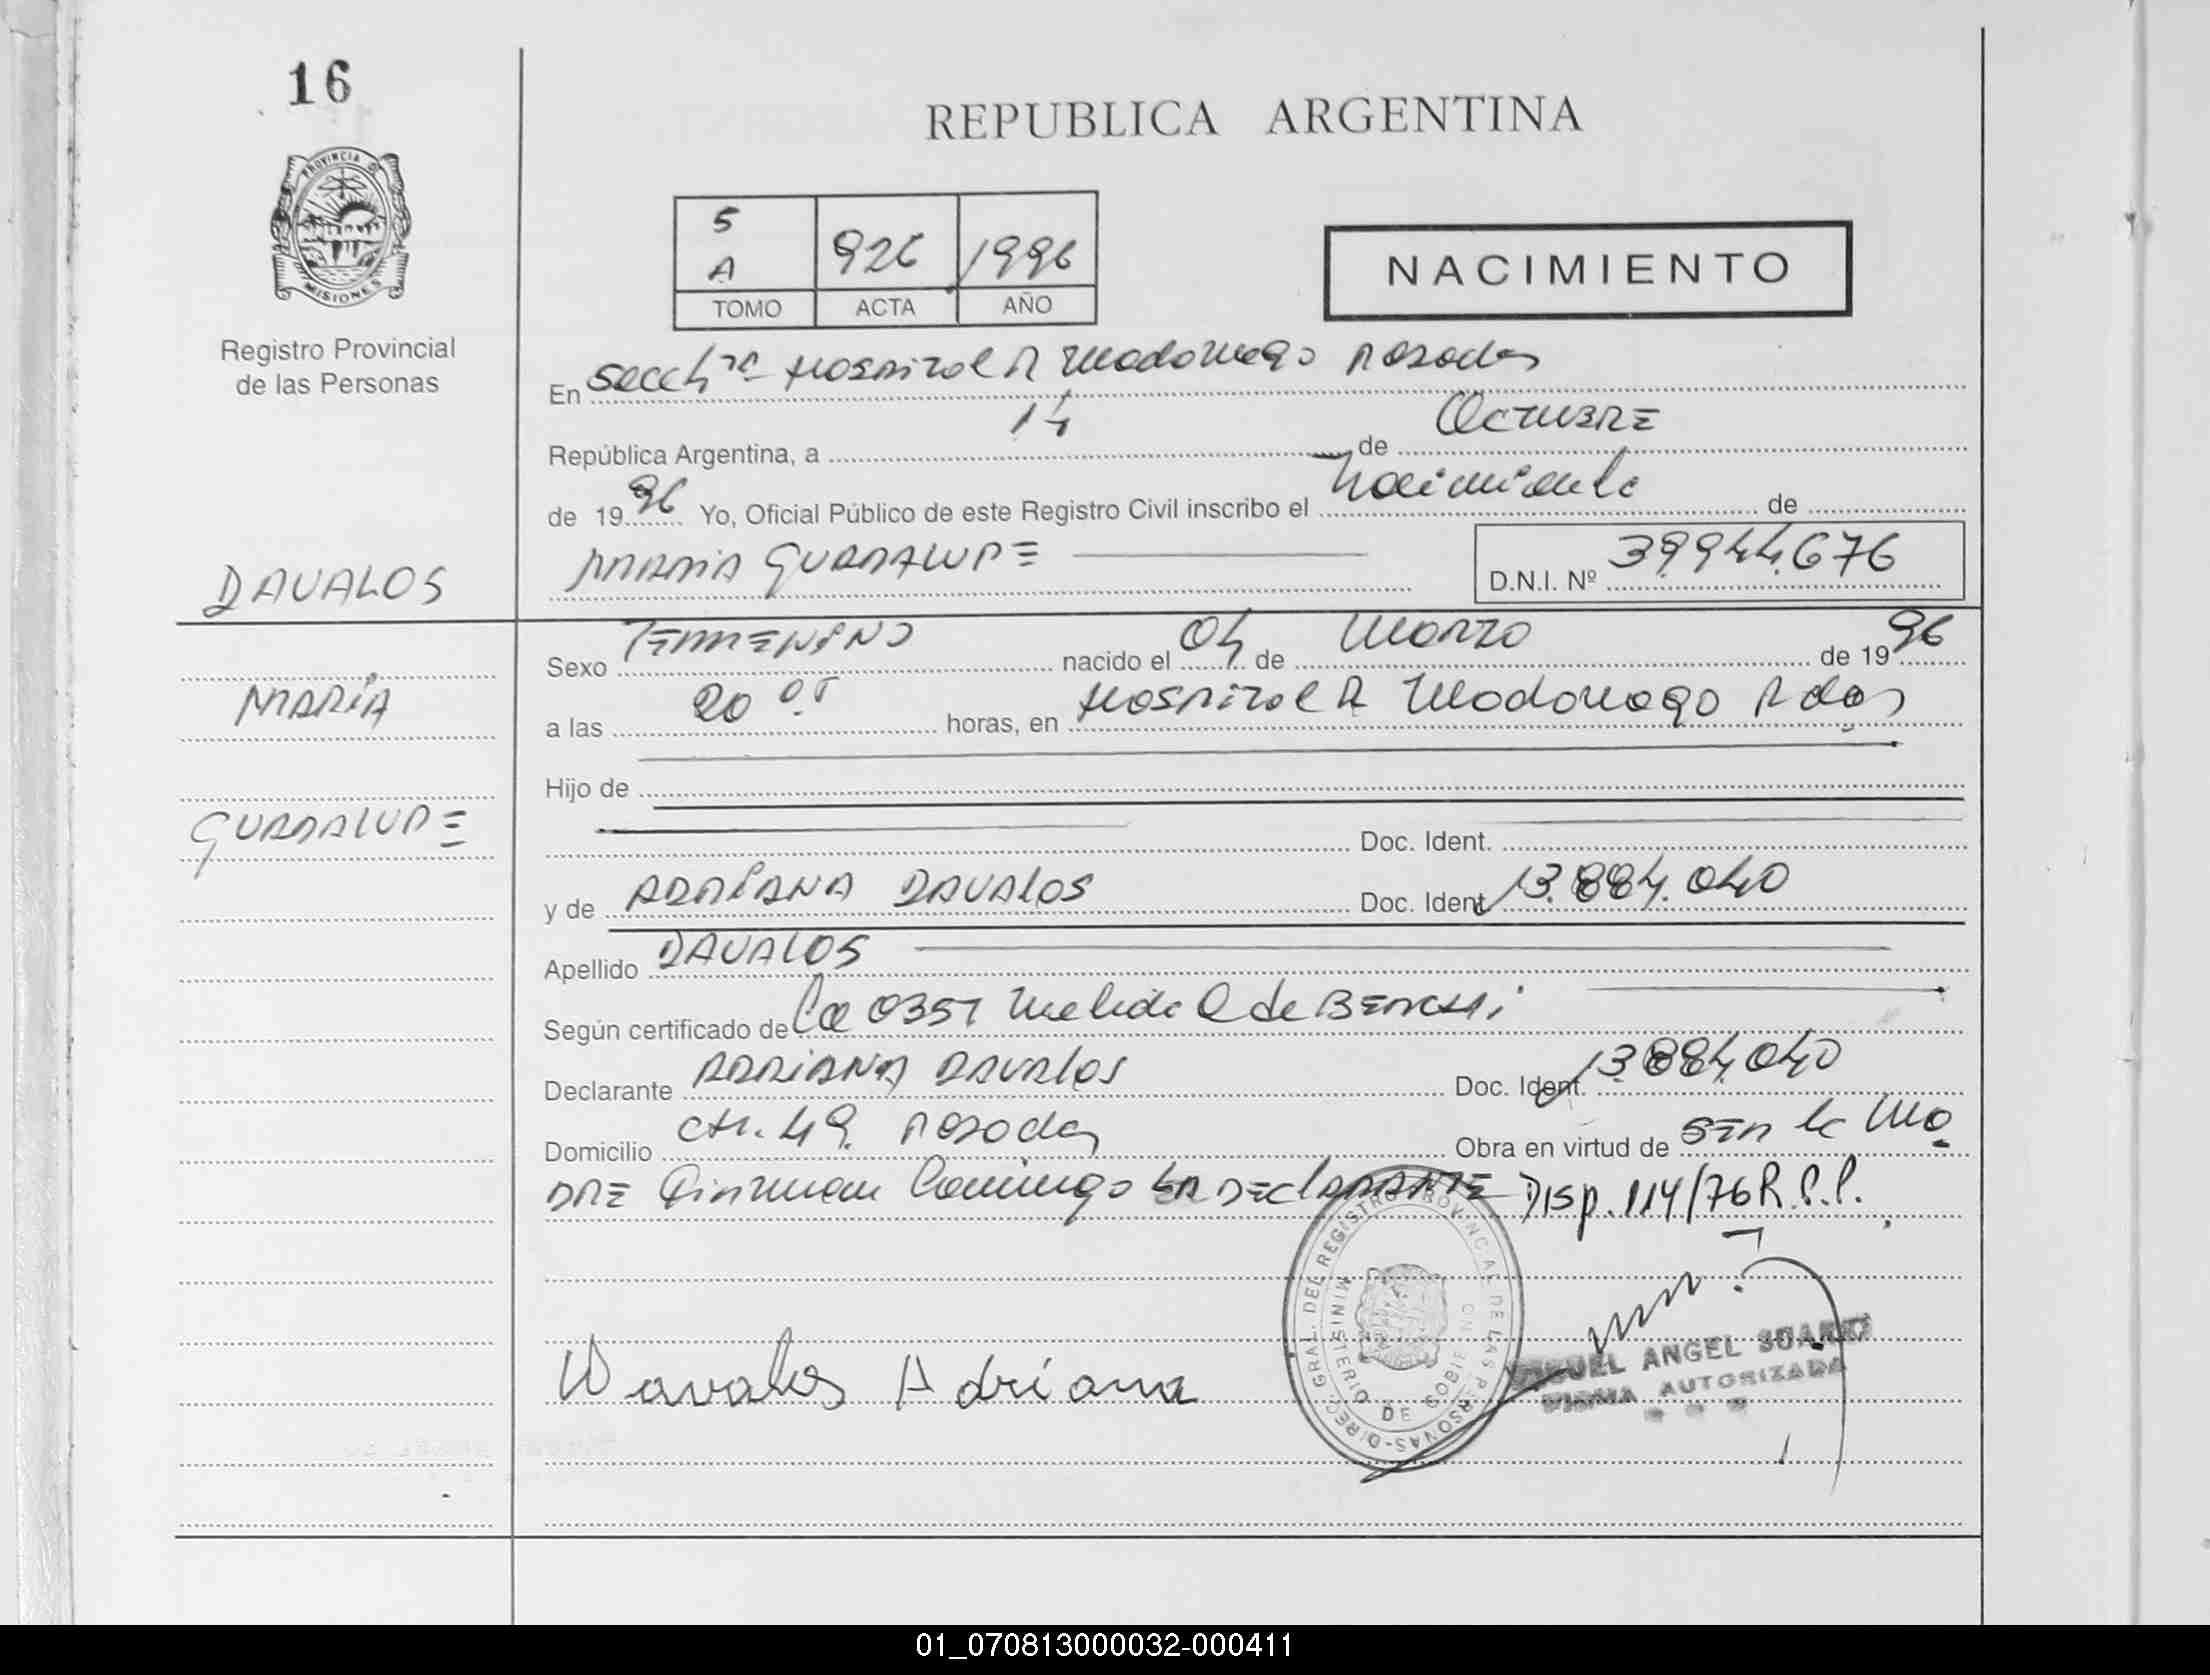 16
REPUBLICA ARGENTINA
PROVINCIA DE
MISIONES
Registro Provincial
de las Personas
5
A 926 1996
TOMO ACTA AÑO
NACIMIENTO
En Secc Hospital R Madariaga Posadas
República Argentina, a 14 de Octubre
de 1996 Yo, Oficial Público de este Registro Civil inscribo el Nacimiento de
DAVALOS
MARIA GUADALUPE D.N.I. Nº 39.944.676
Sexo FEMENINO nacido el 04 de Marzo de 1996
MARÍA
a las 20 05 horas, en Hospital R Madariaga Pdas
Hijo de
GUADALUPE
Doc. Ident.
y de ADRIANA DAVALOS Doc. Ident. 13.884.040
Apellido DAVALOS
Según certificado de 0357 de
Declarante ADRIANA DAVALOS Doc. Ident. 13.884.040
Domicilio CH. 49. Posadas Obra en virtud de SER la MA
DRE LA DECLARANTE DISP. 114/76 R.P.P.
DIREC. GRAL. DEL REGISTRO PROVINCIAL DE LAS PERSONAS
MINISTERIO DE GOBIERNO
Davalos Adriana
MIGUEL ANGEL SUAREZ
FIRMA AUTORIZADA
01_070813000032-000411